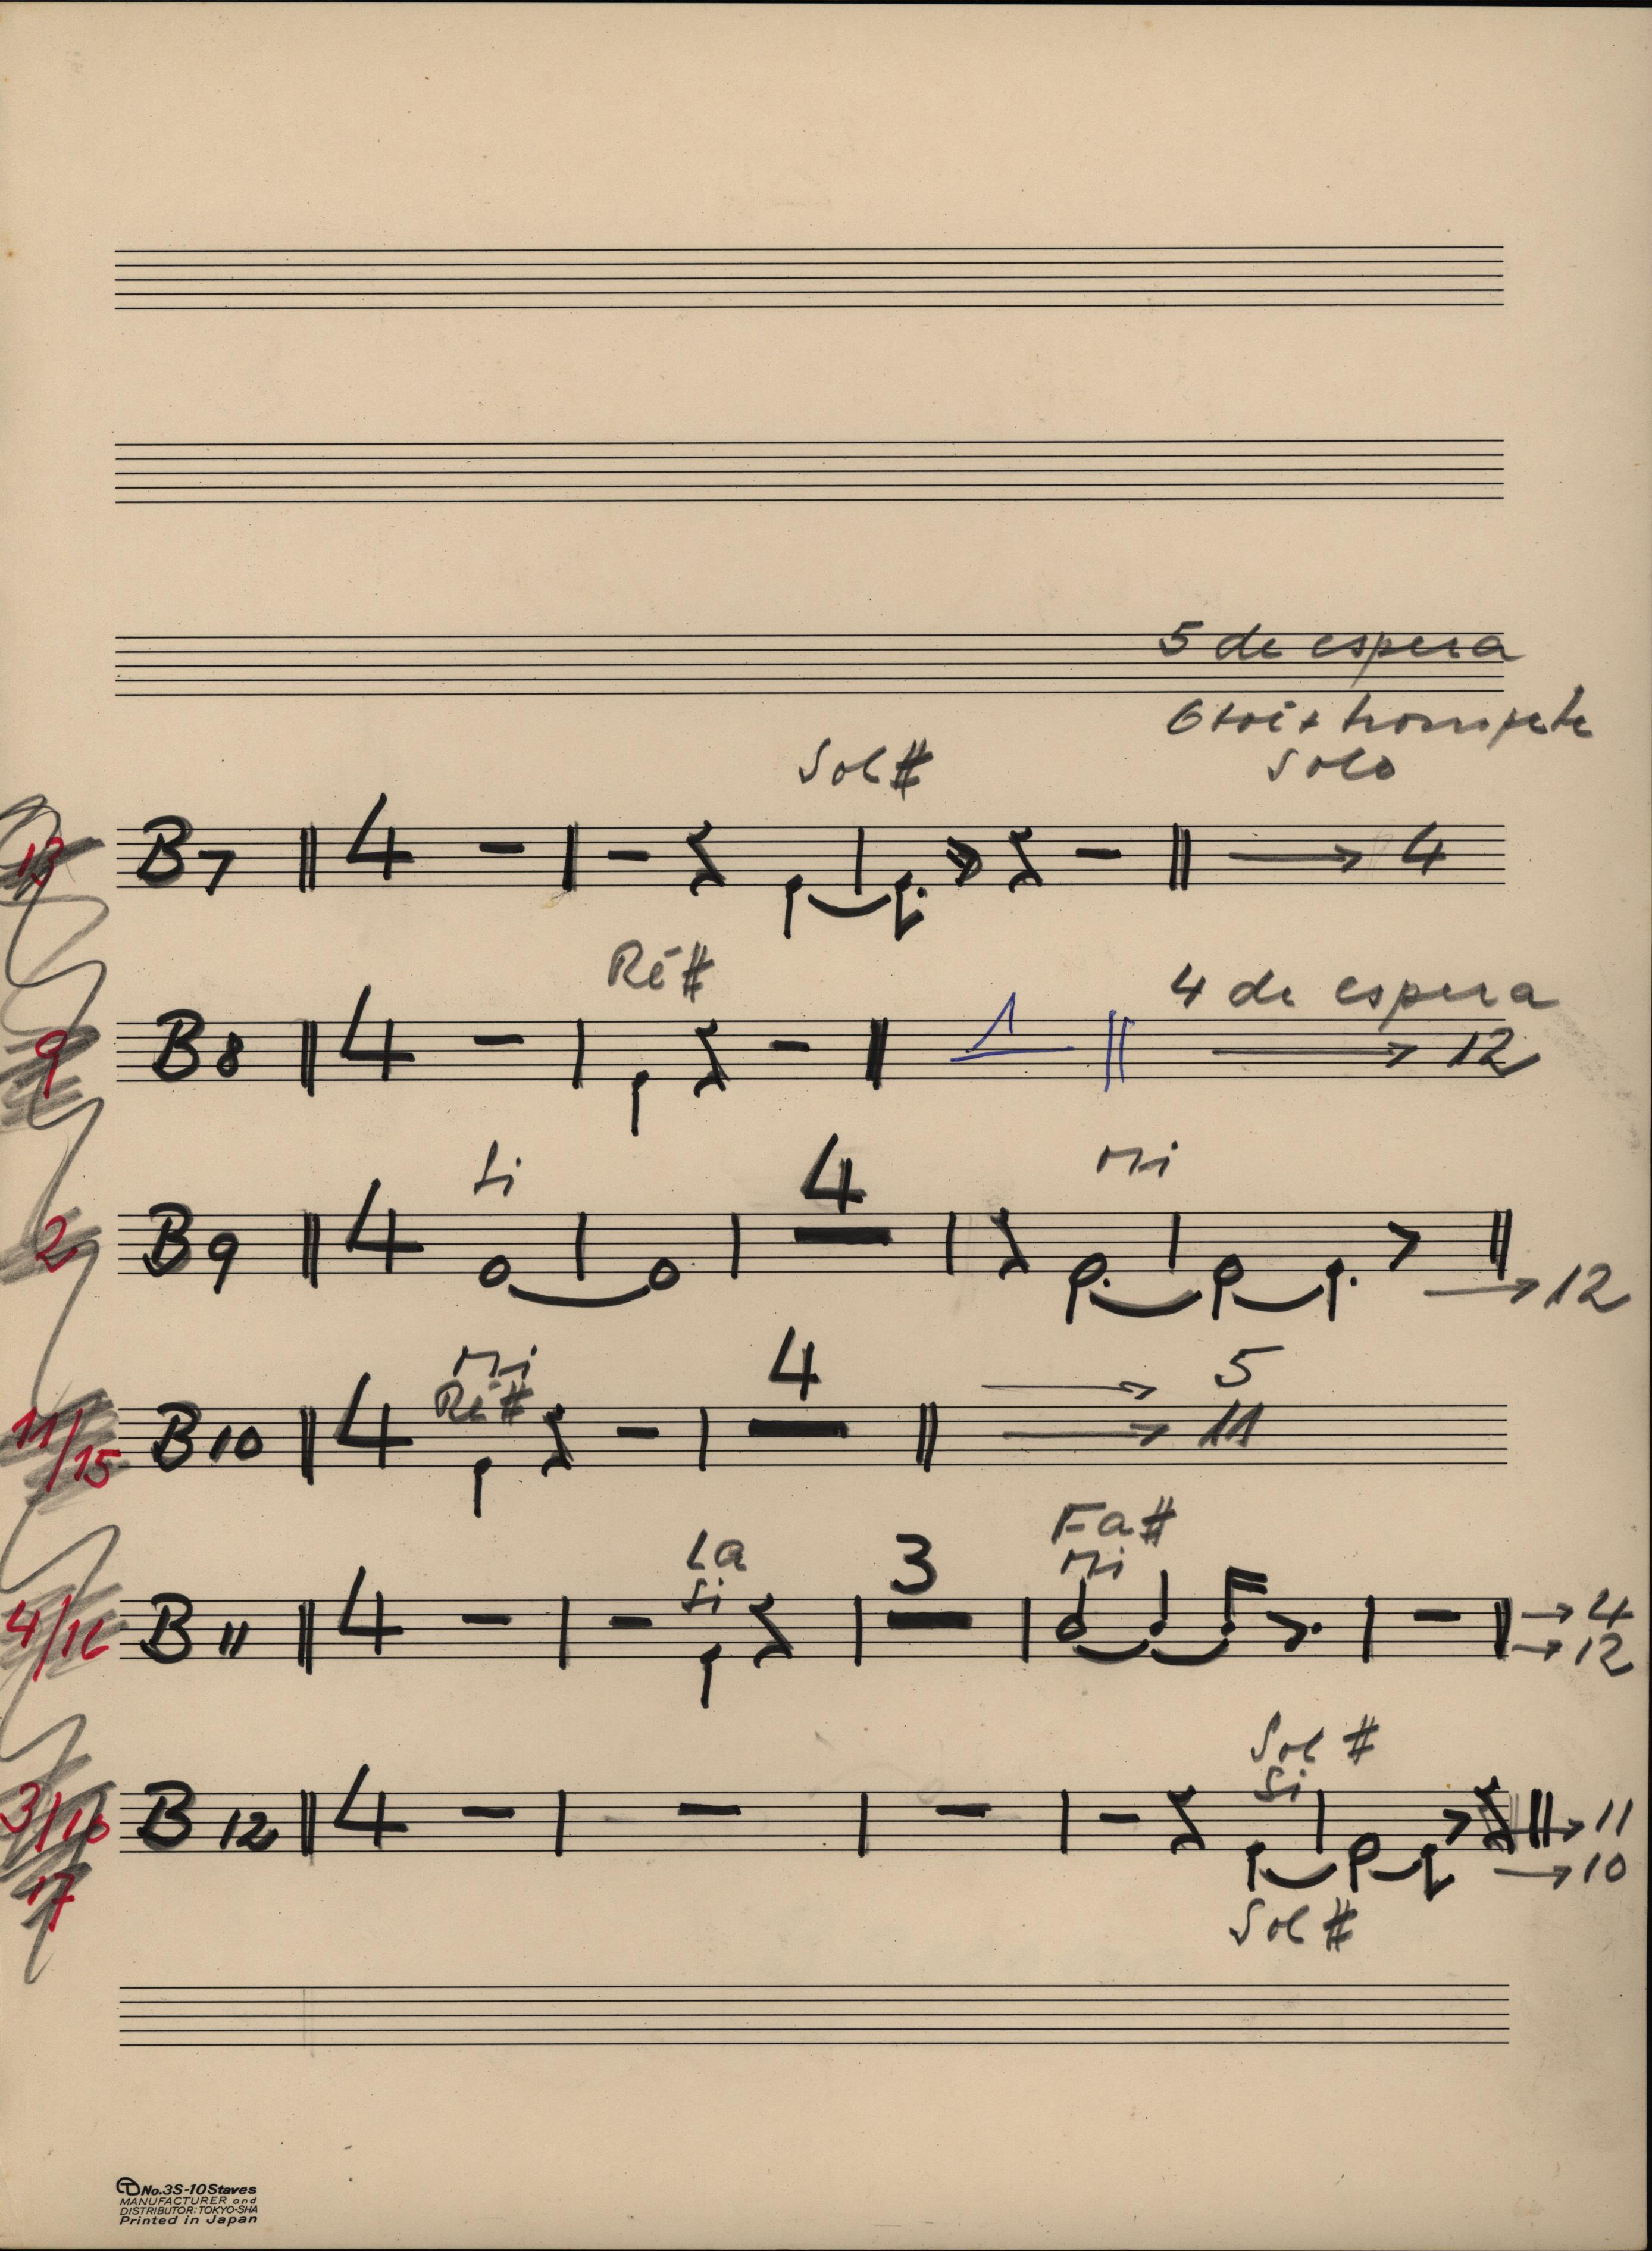 5 de espera
trompete
solo
Sol#
13 B7 4 → 4
Ré# 4 de espera
9 B8 4 1 → 12
Si 4 Mi
2 B9 4 → 12
Mi 4 → 5
Ré#
11/15 B10 4 → 11
La 3 Fa#
Si Mi
4/16 B11 4 → 4
→ 12
Sol #
Si
3/16 B12 4 → 11
17 → 10
Sol #
No.3S-10Staves
MANUFACTURER and
DISTRIBUTOR: TOKYO-SHA
Printed in Japan